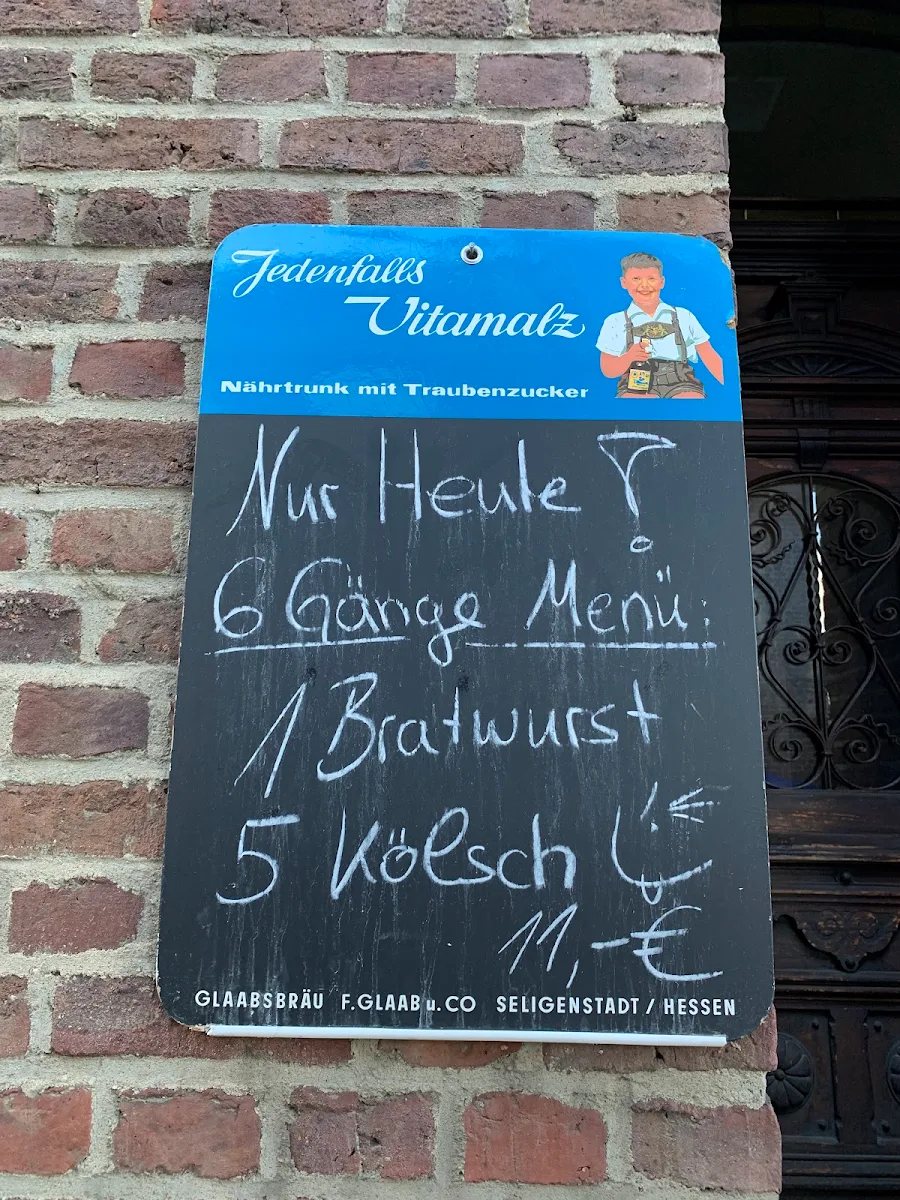 Jedenfalls
Vitamalz
Nährtrunk mit Traubenzucker
Nur Heute !
6 Gänge Menü:
1 Bratwurst
5 Kölsch
11,-€
GLAABSBRÄU F.GLAAB u. CO SELIGENSTADT / HESSEN